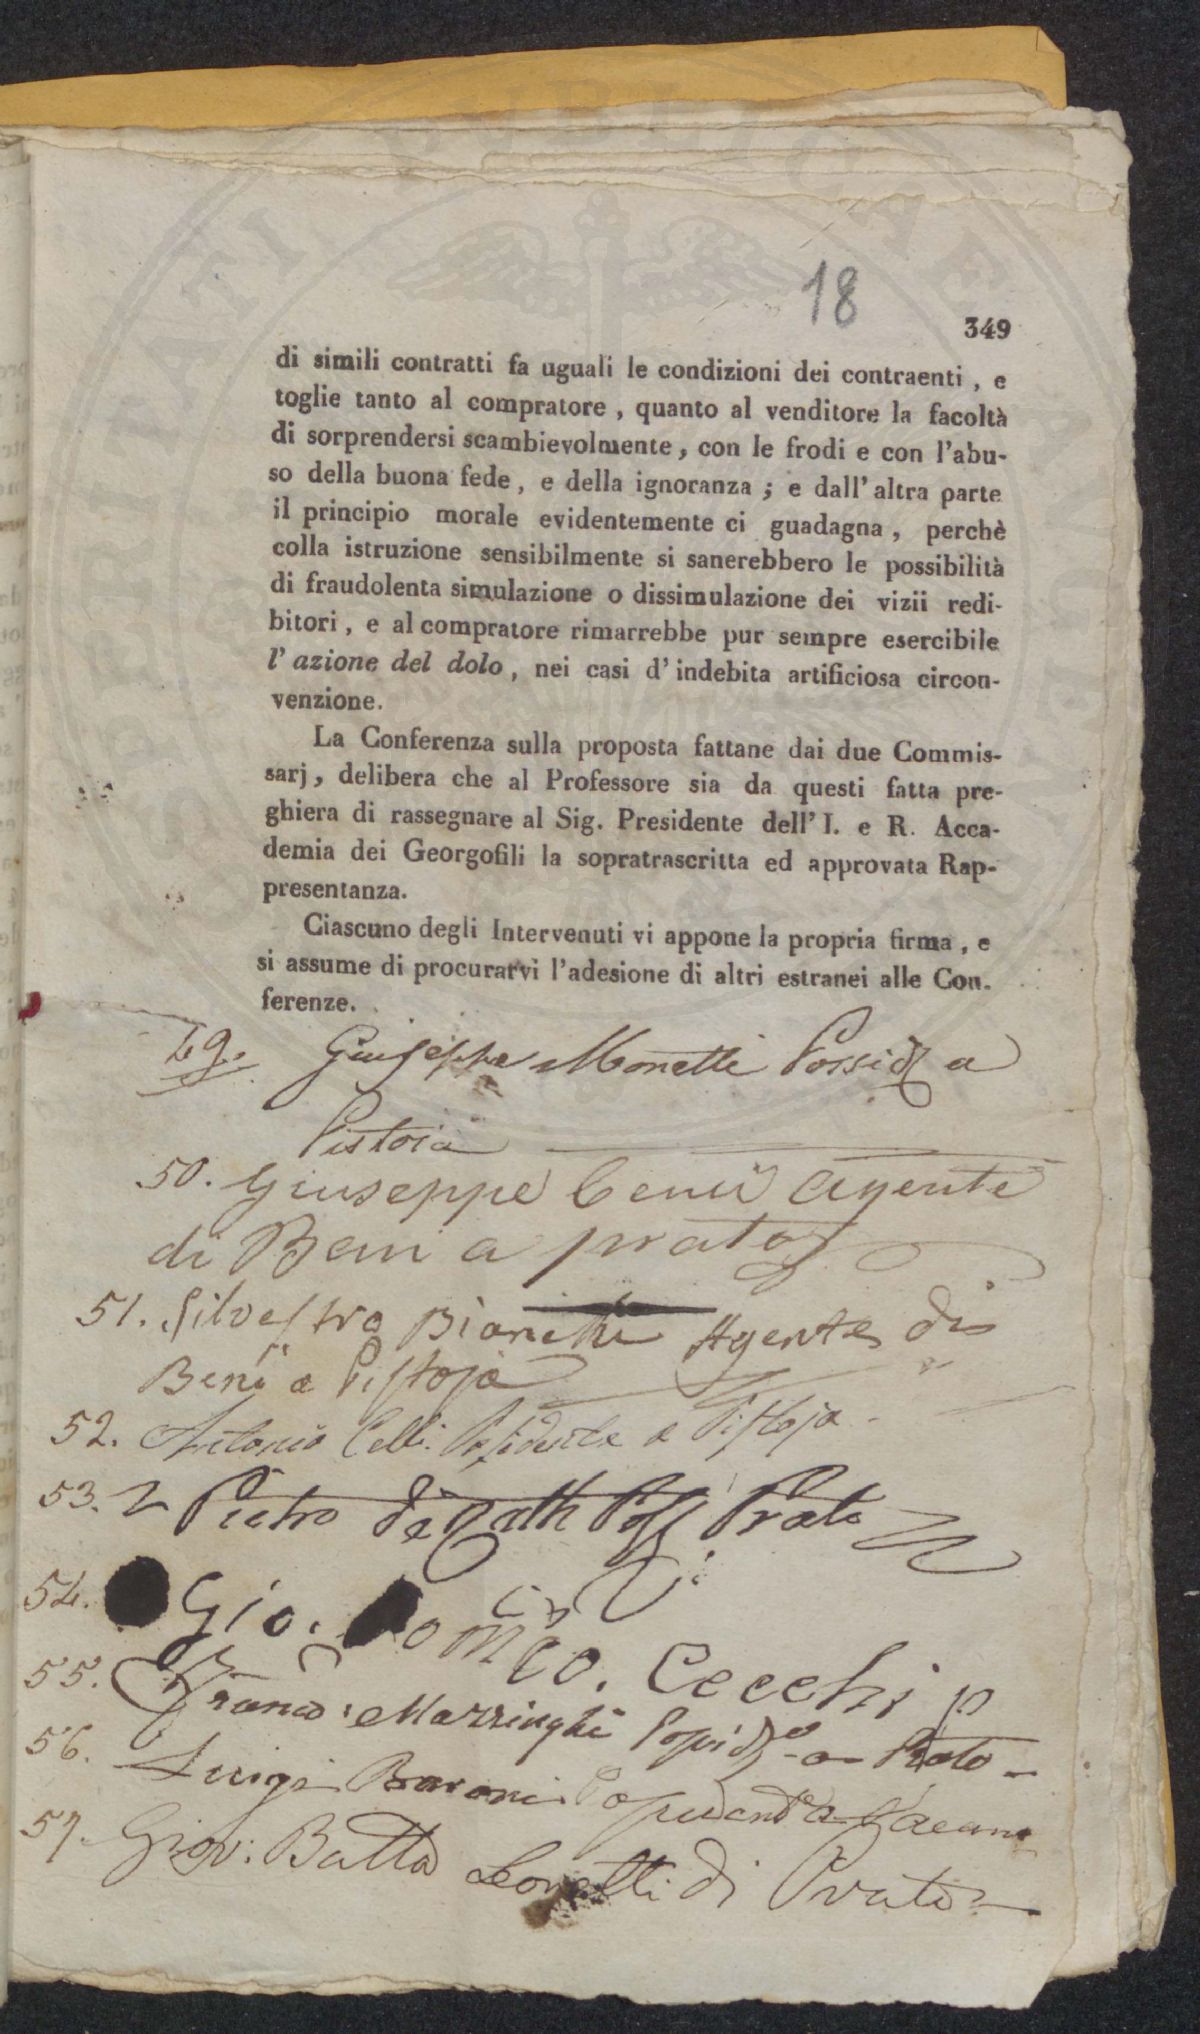 18
349
di simili contratti fa uguali le condizioni dei contraenti , e
toglie tanto al compratore , quanto al venditore la facoltà
di sorprendersi scambievolmente, con le frodi e con l'abu-
so della buona fede, e della ignoranza ; e dall' altra parte
il principio morale evidentemente ci guadagna , perchè
colla istruzione sensibilmente si sanerebbero le possibilità
di fraudolenta simulazione o dissimulazione dei vizii redi-
bitori , e al compratore rimarrebbe pur sempre esercibile
l' azione del dolo , nei casi d' indebita artificiosa circon-
venzione.
La Conferenza sulla proposta fattane dai due Commis-
sarj, delibera che al Professore sia da questi fatta pre-
ghiera di rassegnare al Sig. Presidente dell' I. e R. Acca-
demia dei Georgofili la sopratrascritta ed approvata Rap-
presentanza.
Ciascuno degli Intervenuti vi appone la propria firma , e
si assume di procurarvi l'adesione di altri estranei alle Con-
ferenze.
49. Giuseppe Monetti Possid a
Pistoia
50. Giuseppe Agente
di Beni a prato
51. Silvestro Bianchi Agente di
Beni a Pistoja
52. Antonio Celli a Pistoja
53. Pietro Poss Prato
54. Gio. Domco. Cecchi
55. Franco: Mazzinghi Possid a Prato
56. Luigi Baroni
57. Giov: Batta Leonetti di Prato